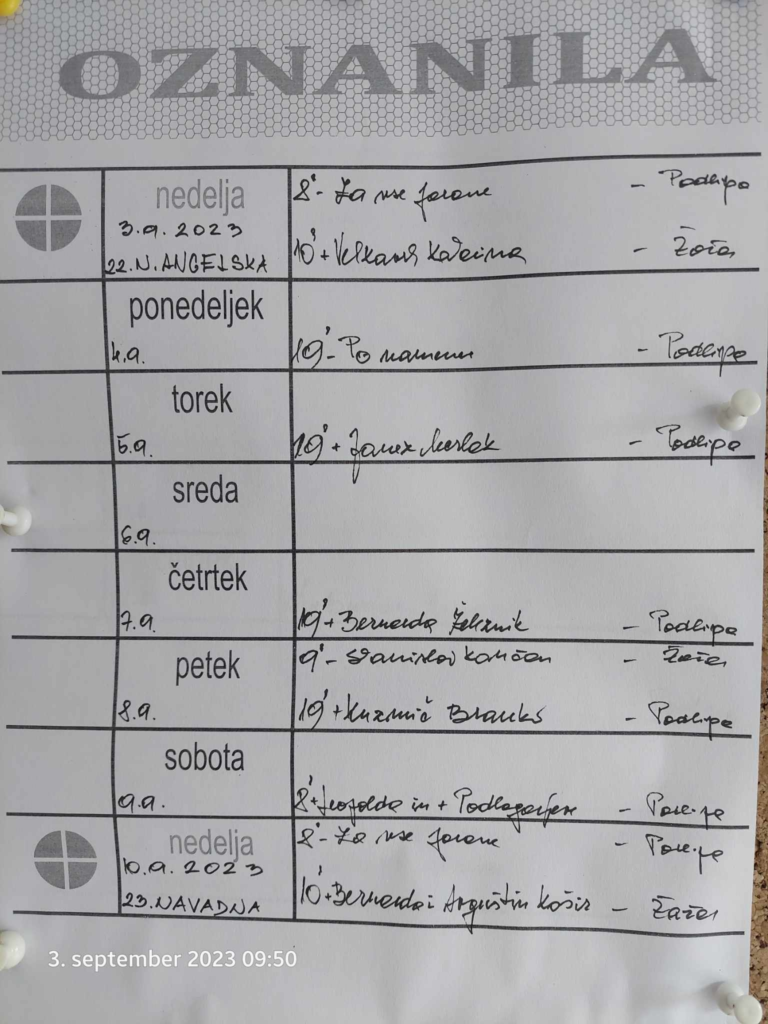 OZNANILA
nedelja
3.9.2023
22.N. ANGELSKA
8' - Za vse farane - Podlipa
10' + Katarina - Žažar
ponedeljek
4.9.
19' - Po namenu - Podlipa
torek
5.9.
19' + Janez - Podlipa
sreda
6.9.
četrtek
7.9.
19' + Bernarda Železnik - Podlipa
petek
8.9.
9' - Stanislav - Žažar
19' + Kuzmič Branko - Podlipa
sobota
9.9.
8' + Leopolda in + - Podlipa
nedelja
10.9.2023
23. NAVADNA
8' - Za vse farane - Podlipa
10' + Bernarda i Avguštin Košir - Žažar
3. september 2023 09:50